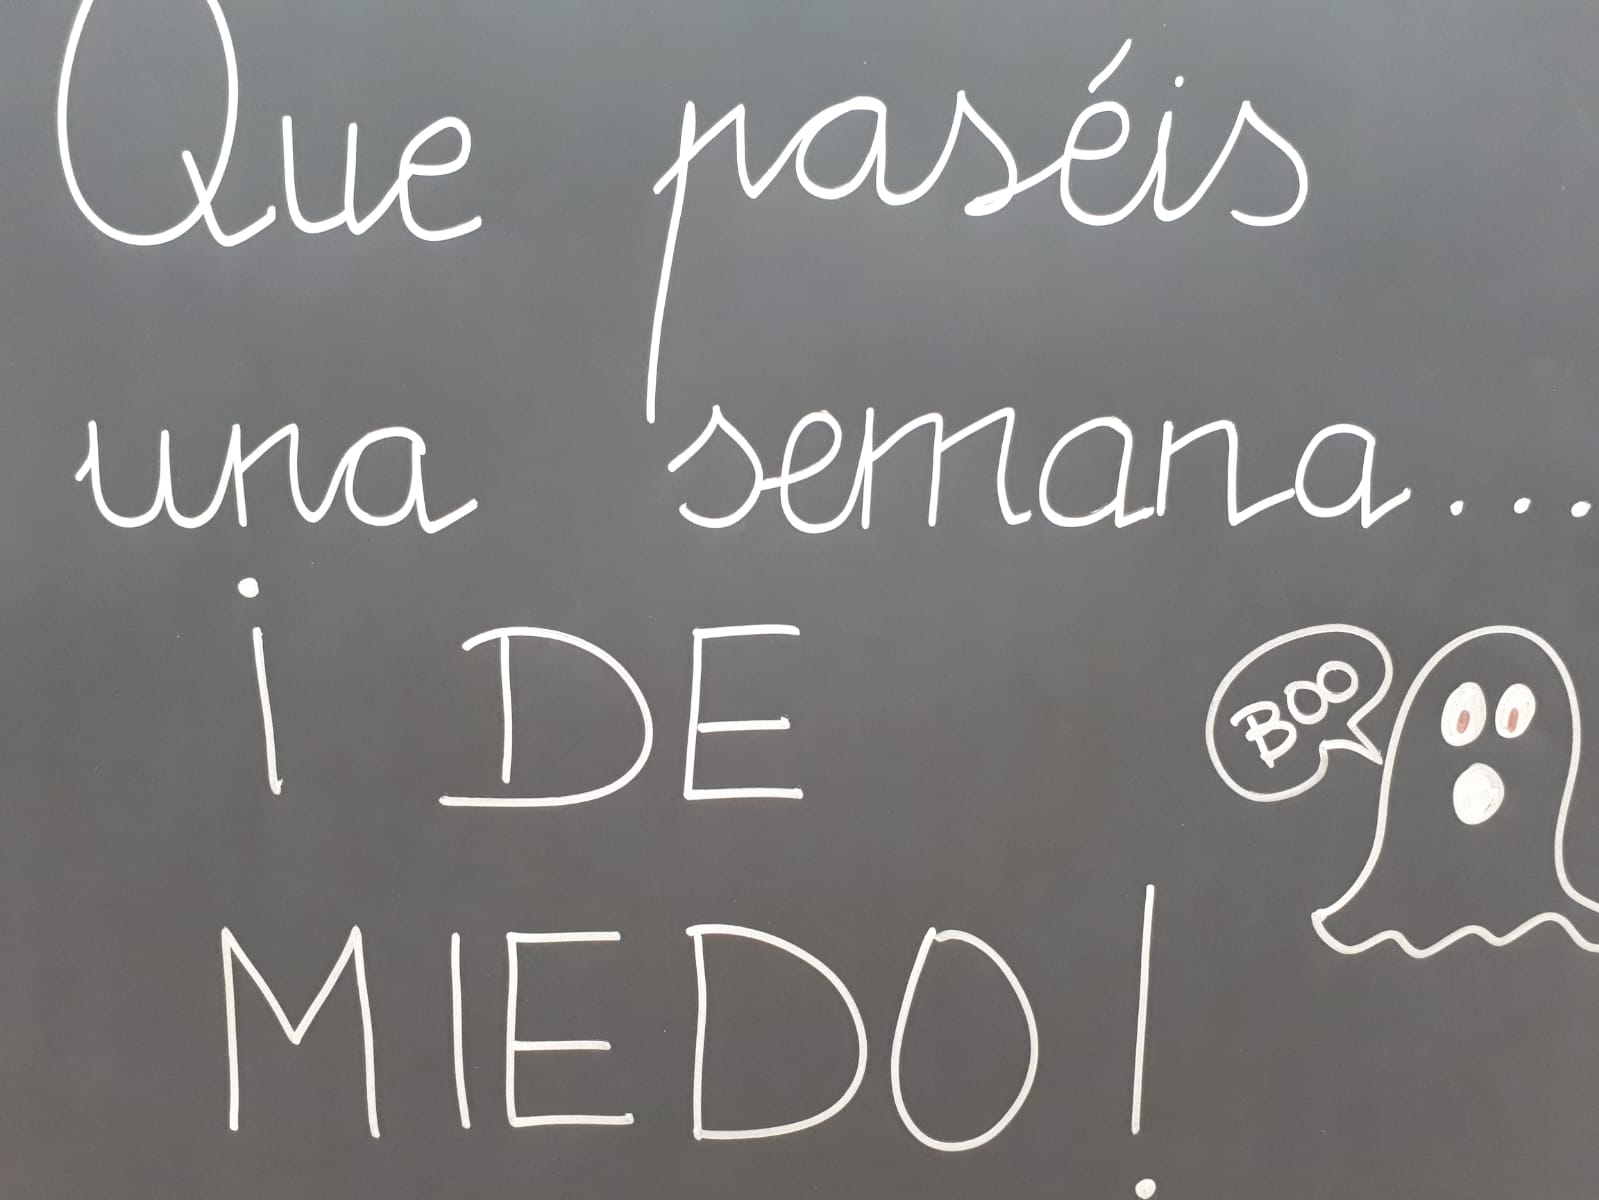 Que paséis
una semana...
¡DE
BOO
MIEDO!